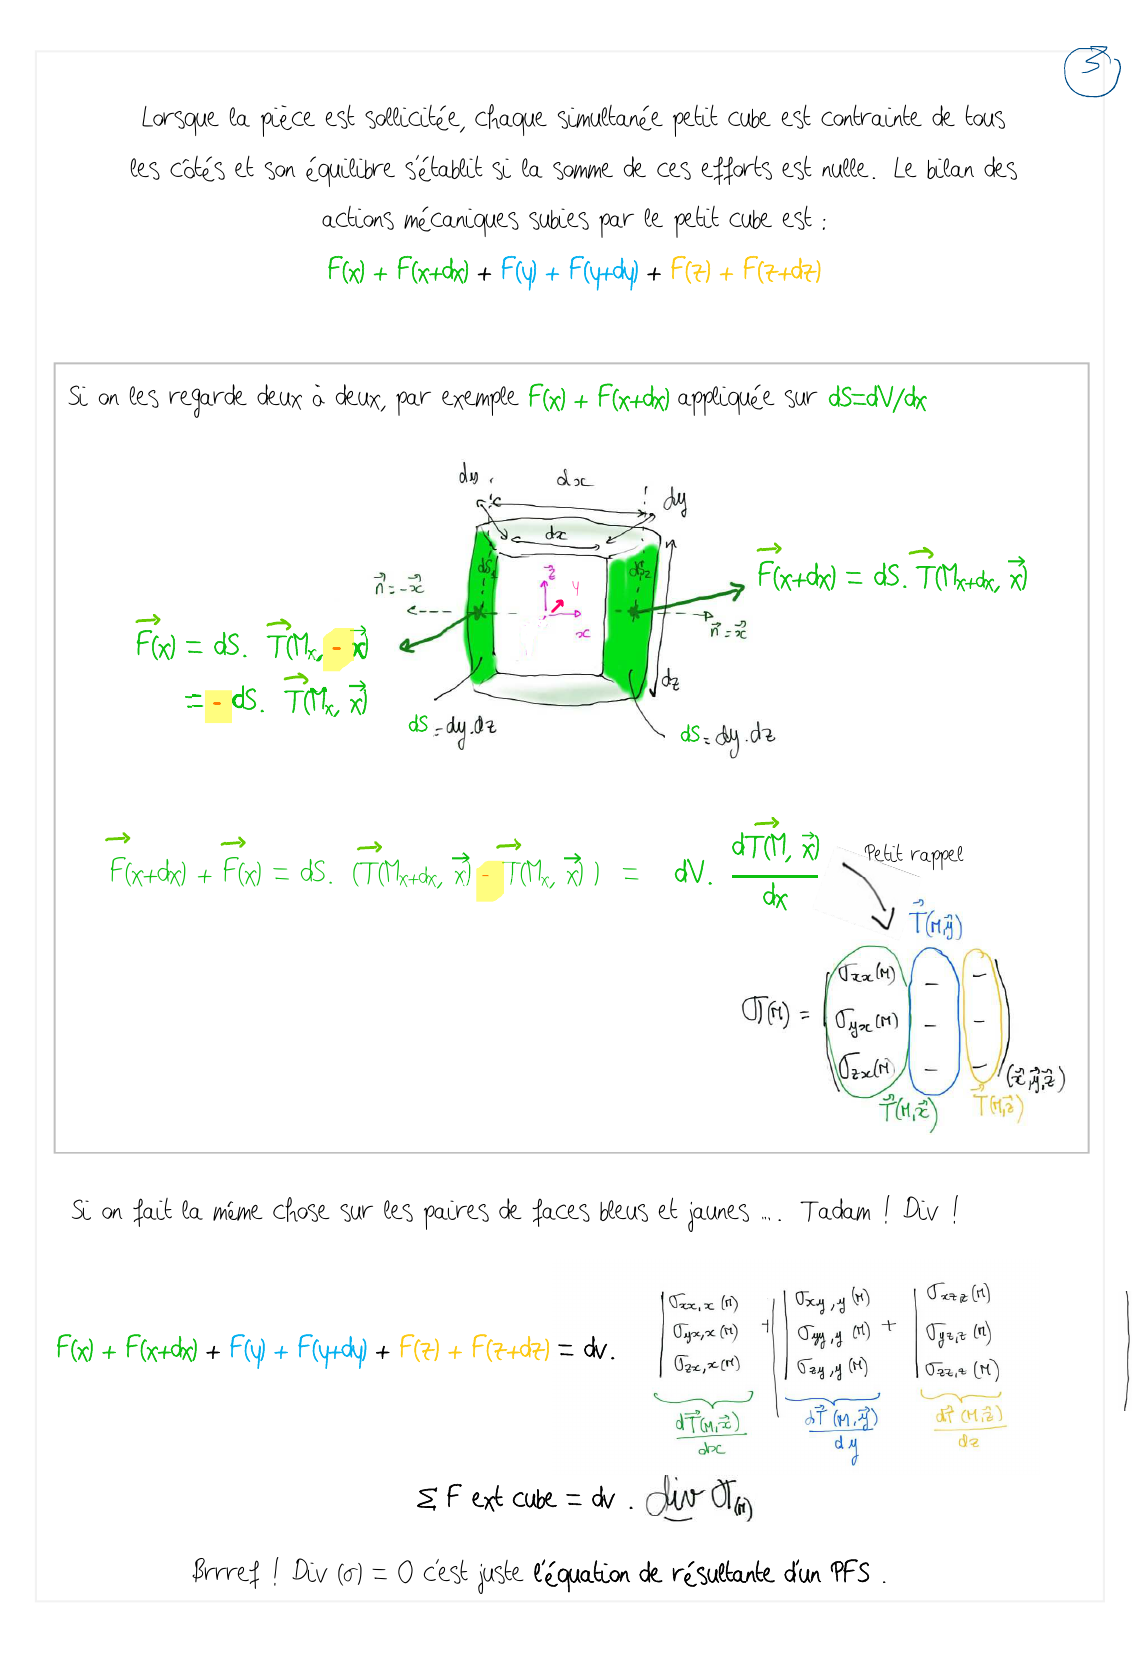 3
Lorsque la pièce est sollicitée, chaque simultanée petit cube est contrainte de tous
les côtés et son équilibre s'établit si la somme de ces efforts est nulle. Le bilan des
actions mécaniques subies par le petit cube est :
F(x) + F(x+dx) + F(y) + F(y+dy) + F(z) + F(z+dz)
Si on les regarde deux à deux, par exemple F(x) + F(x+dx) appliquée sur dS=dV/dx
dy dx dy
dx
dS dS₂
n⃗ = -x⃗
z⃗ y x
n⃗ = x⃗
dz
F⃗(x+dx) = dS. T⃗(M_{x+dx}, x⃗)
F⃗(x) = dS. T⃗(M_x, - x⃗)
= - dS. T⃗(M_x, x⃗)
dS = dy.dz
dS = dy.dz
F⃗(x+dx) + F⃗(x) = dS. (T⃗(M_{x+dx}, x⃗) - T⃗(M_x, x⃗)) = dV. dT⃗(M, x⃗)/dx
Petit rappel
T⃗(M,y⃗)
σxx(M) – –
σ(M) = σyx(M) – –
σzx(M) – –
(x⃗,y⃗,z⃗)
T⃗(M,x⃗) T⃗(M,z⃗)
Si on fait la même chose sur les paires de faces bleus et jaunes .... Tadam ! Div !
σxx,x (M) σxy,y (M) σxz,z (M)
F(x) + F(x+dx) + F(y) + F(y+dy) + F(z) + F(z+dz) = dv. σyx,x (M) + σyy,y (M) + σyz,z (M)
σzx,x (M) σzy,y (M) σzz,z (M)
dT⃗(M,x⃗)/dx dT⃗(M,y⃗)/dy dT⃗(M,z⃗)/dz
Σ F ext cube = dv . div σ(M)
Brrref ! Div (σ) = 0 c'est juste l'équation de résultante d'un PFS .